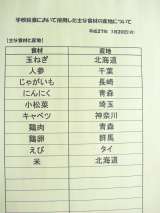 学校給食において使用した主な食材の産地について
平成27年 1月20日(火)
【主な食材と産地】
食材 産地
玉ねぎ 北海道
人参 千葉
じゃがいも 長崎
にんにく 青森
小松菜 埼玉
キャベツ 神奈川
鶏肉 青森
鶏卵 群馬
えび タイ
米 北海道